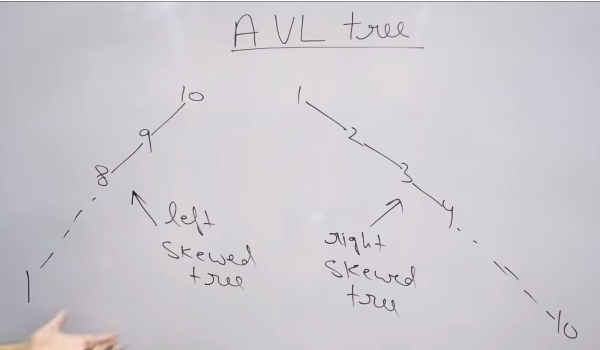 AVL tree
10
9
8
1
left
skewed
tree
1
2
3
4
10
right
skewed
tree